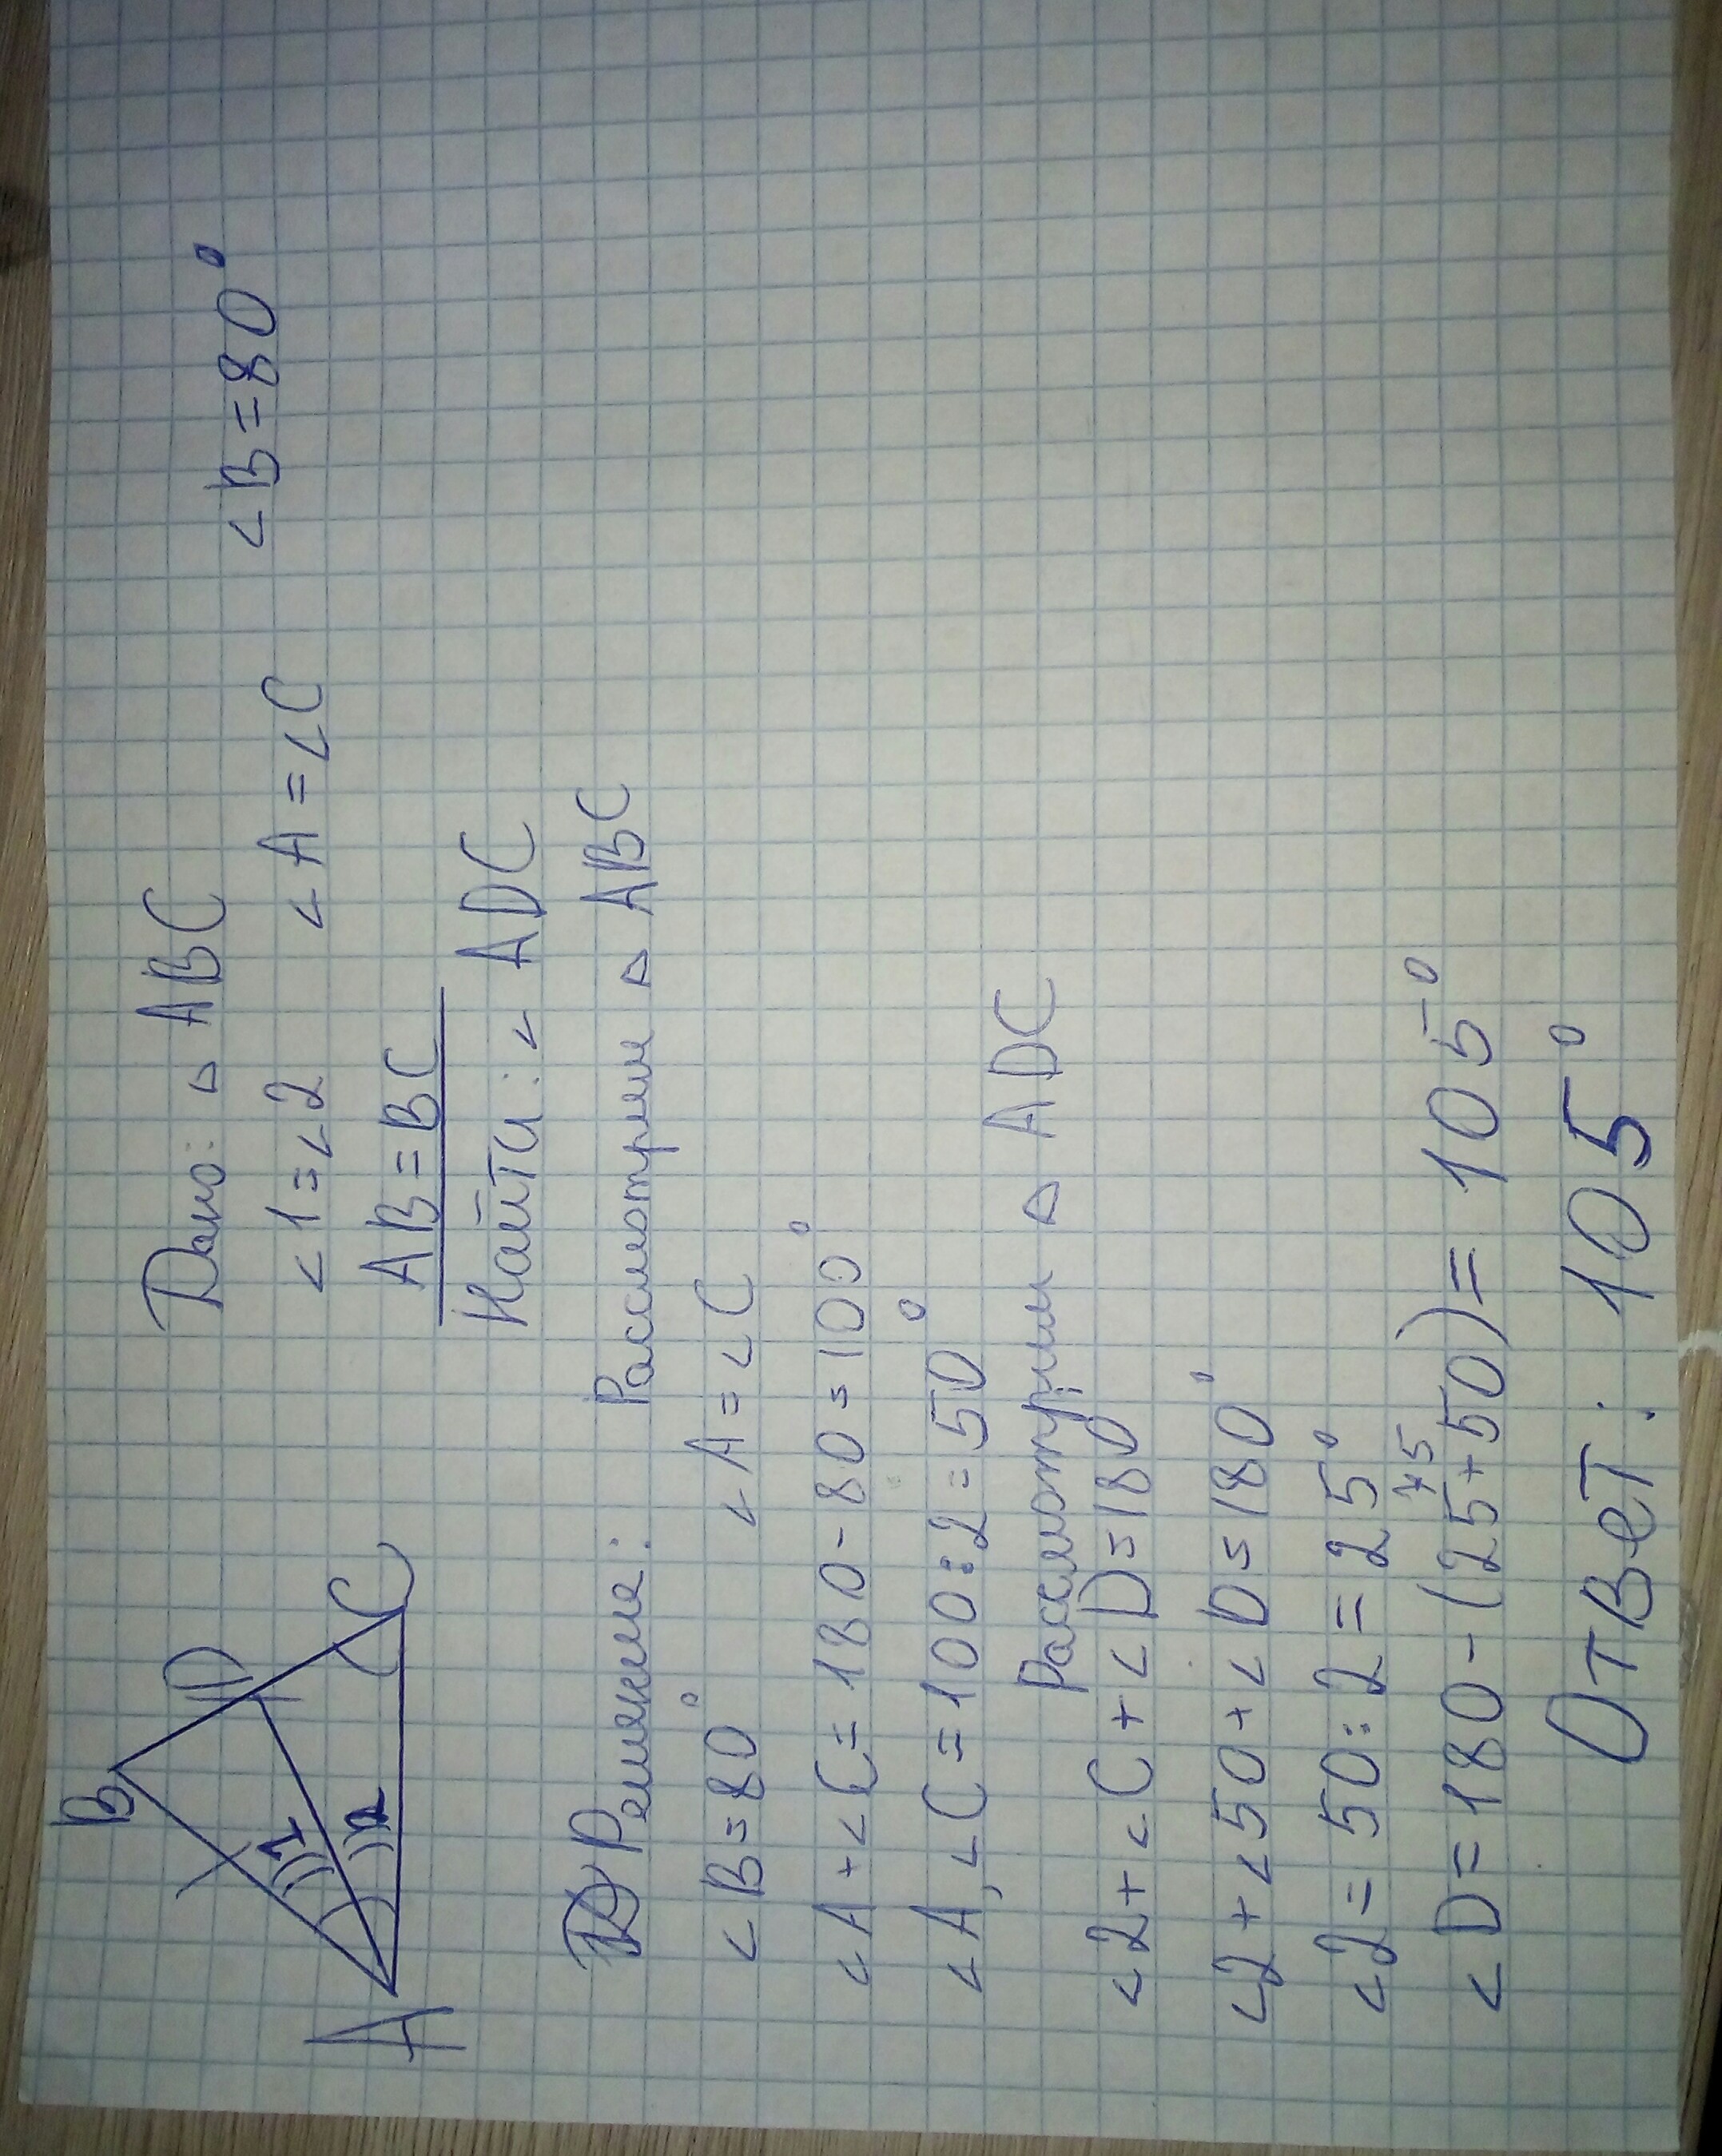 B
D
1
2
A
C
Дано: △ ABC
∠1=∠2 ∠A=∠C ∠B=80°
AB=BC
Найти: ∠ ADC
Решение: Рассмотрим △ ABC
∠B=80° ∠A=∠C
∠A+∠C=180-80=100°
∠A,∠C=100:2=50°
Рассмотрим △ ADC
∠2+∠C+∠D=180
∠2+∠50+∠D=180°
∠2=50:2=25°
75
∠D=180-(25+50)=105°
Ответ: 105°